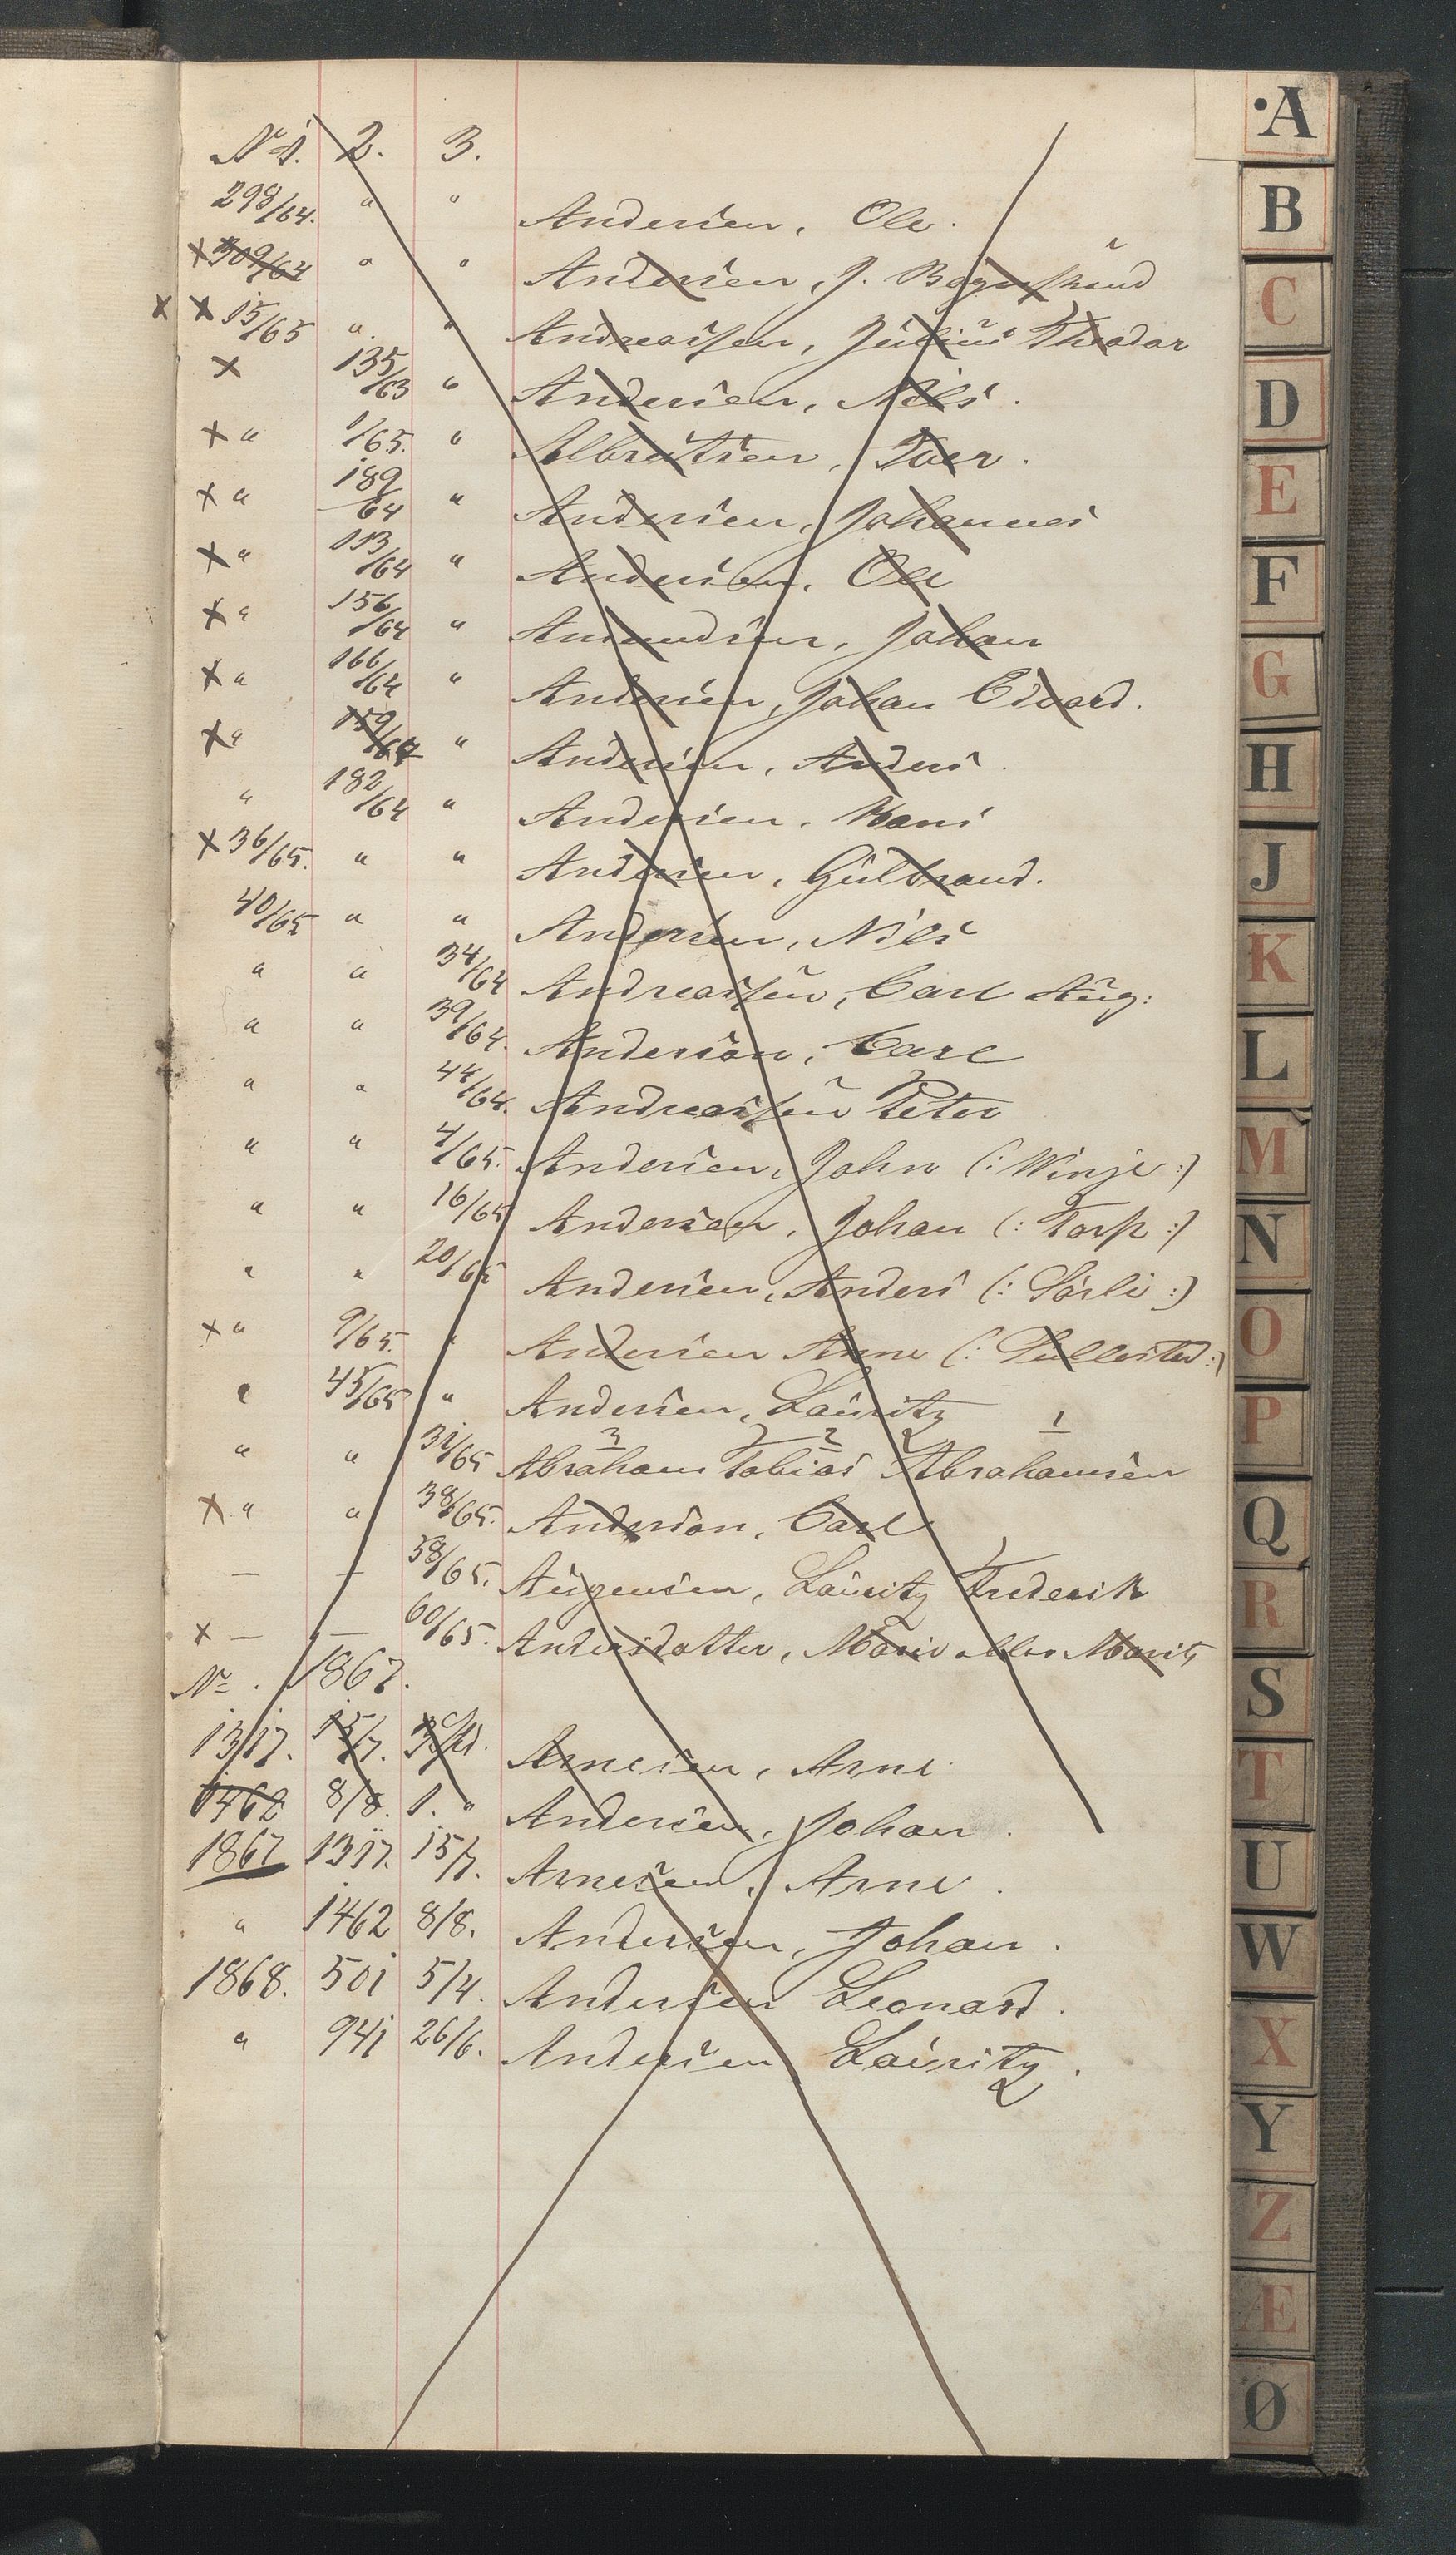 No 1. 2. 3.
298/64. " " Andersen, Ole.
× 309/64 " " Andersen, J.
× × 15/65 " " Andreassen, Julius Theodor
× 135/63 " Andersen, Nils.
× " 1/65. " Iver.
× " 189/64 " Andersen, Johannes
× " 113/64 " Andersen, Ole
× " 156/64 " Amundsen, Johan
× " 166/64 " Andersen, Johan Edvard.
× " 159/64 " Andersen, Anders.
" 182/64 " Andersen, Hans
× 36/65. " " Andersen, Gulbrand.
40/65 " " Andersen, Nils
" " 34/64 Andreassen, Carl Aug:
" " 39/64. Anderson, Carl
" " 44/64. Andreassen Peter
" " 4/65. Andersen, John (: Winje :)
" " 16/65 Andersen, Johan (: Torp :)
" " 20/65 Andersen, Anders (: Sörli :)
× " 9/65. " Andersen Anne
" 45/65 " Andersen, Lauritz
3 2 1
" " 31/65 Abraham Tobias Abrahamsen
× " " 38/65. Anderson, Carl
— — 58/65. Augensen, Lauritz Frederik
× — — 60/65. Andersdatter, Marie eller Marit
No. 1867.
1317. 15/7. Arnesen, Arne
1462 8/8. 1. " Andersen, Johan.
1867 1317. 15/7. Arnesen, Arne.
" 1462 8/8. Andersen, Johan.
1868. 501 5/4. Andersen Leonard.
" 941 26/6. Andersen Lauritz.
A
B
C
D
E
F
G
H
J
K
L
M
N
O
P
Q
R
S
T
U
W
X
Y
Z
Æ
Ø